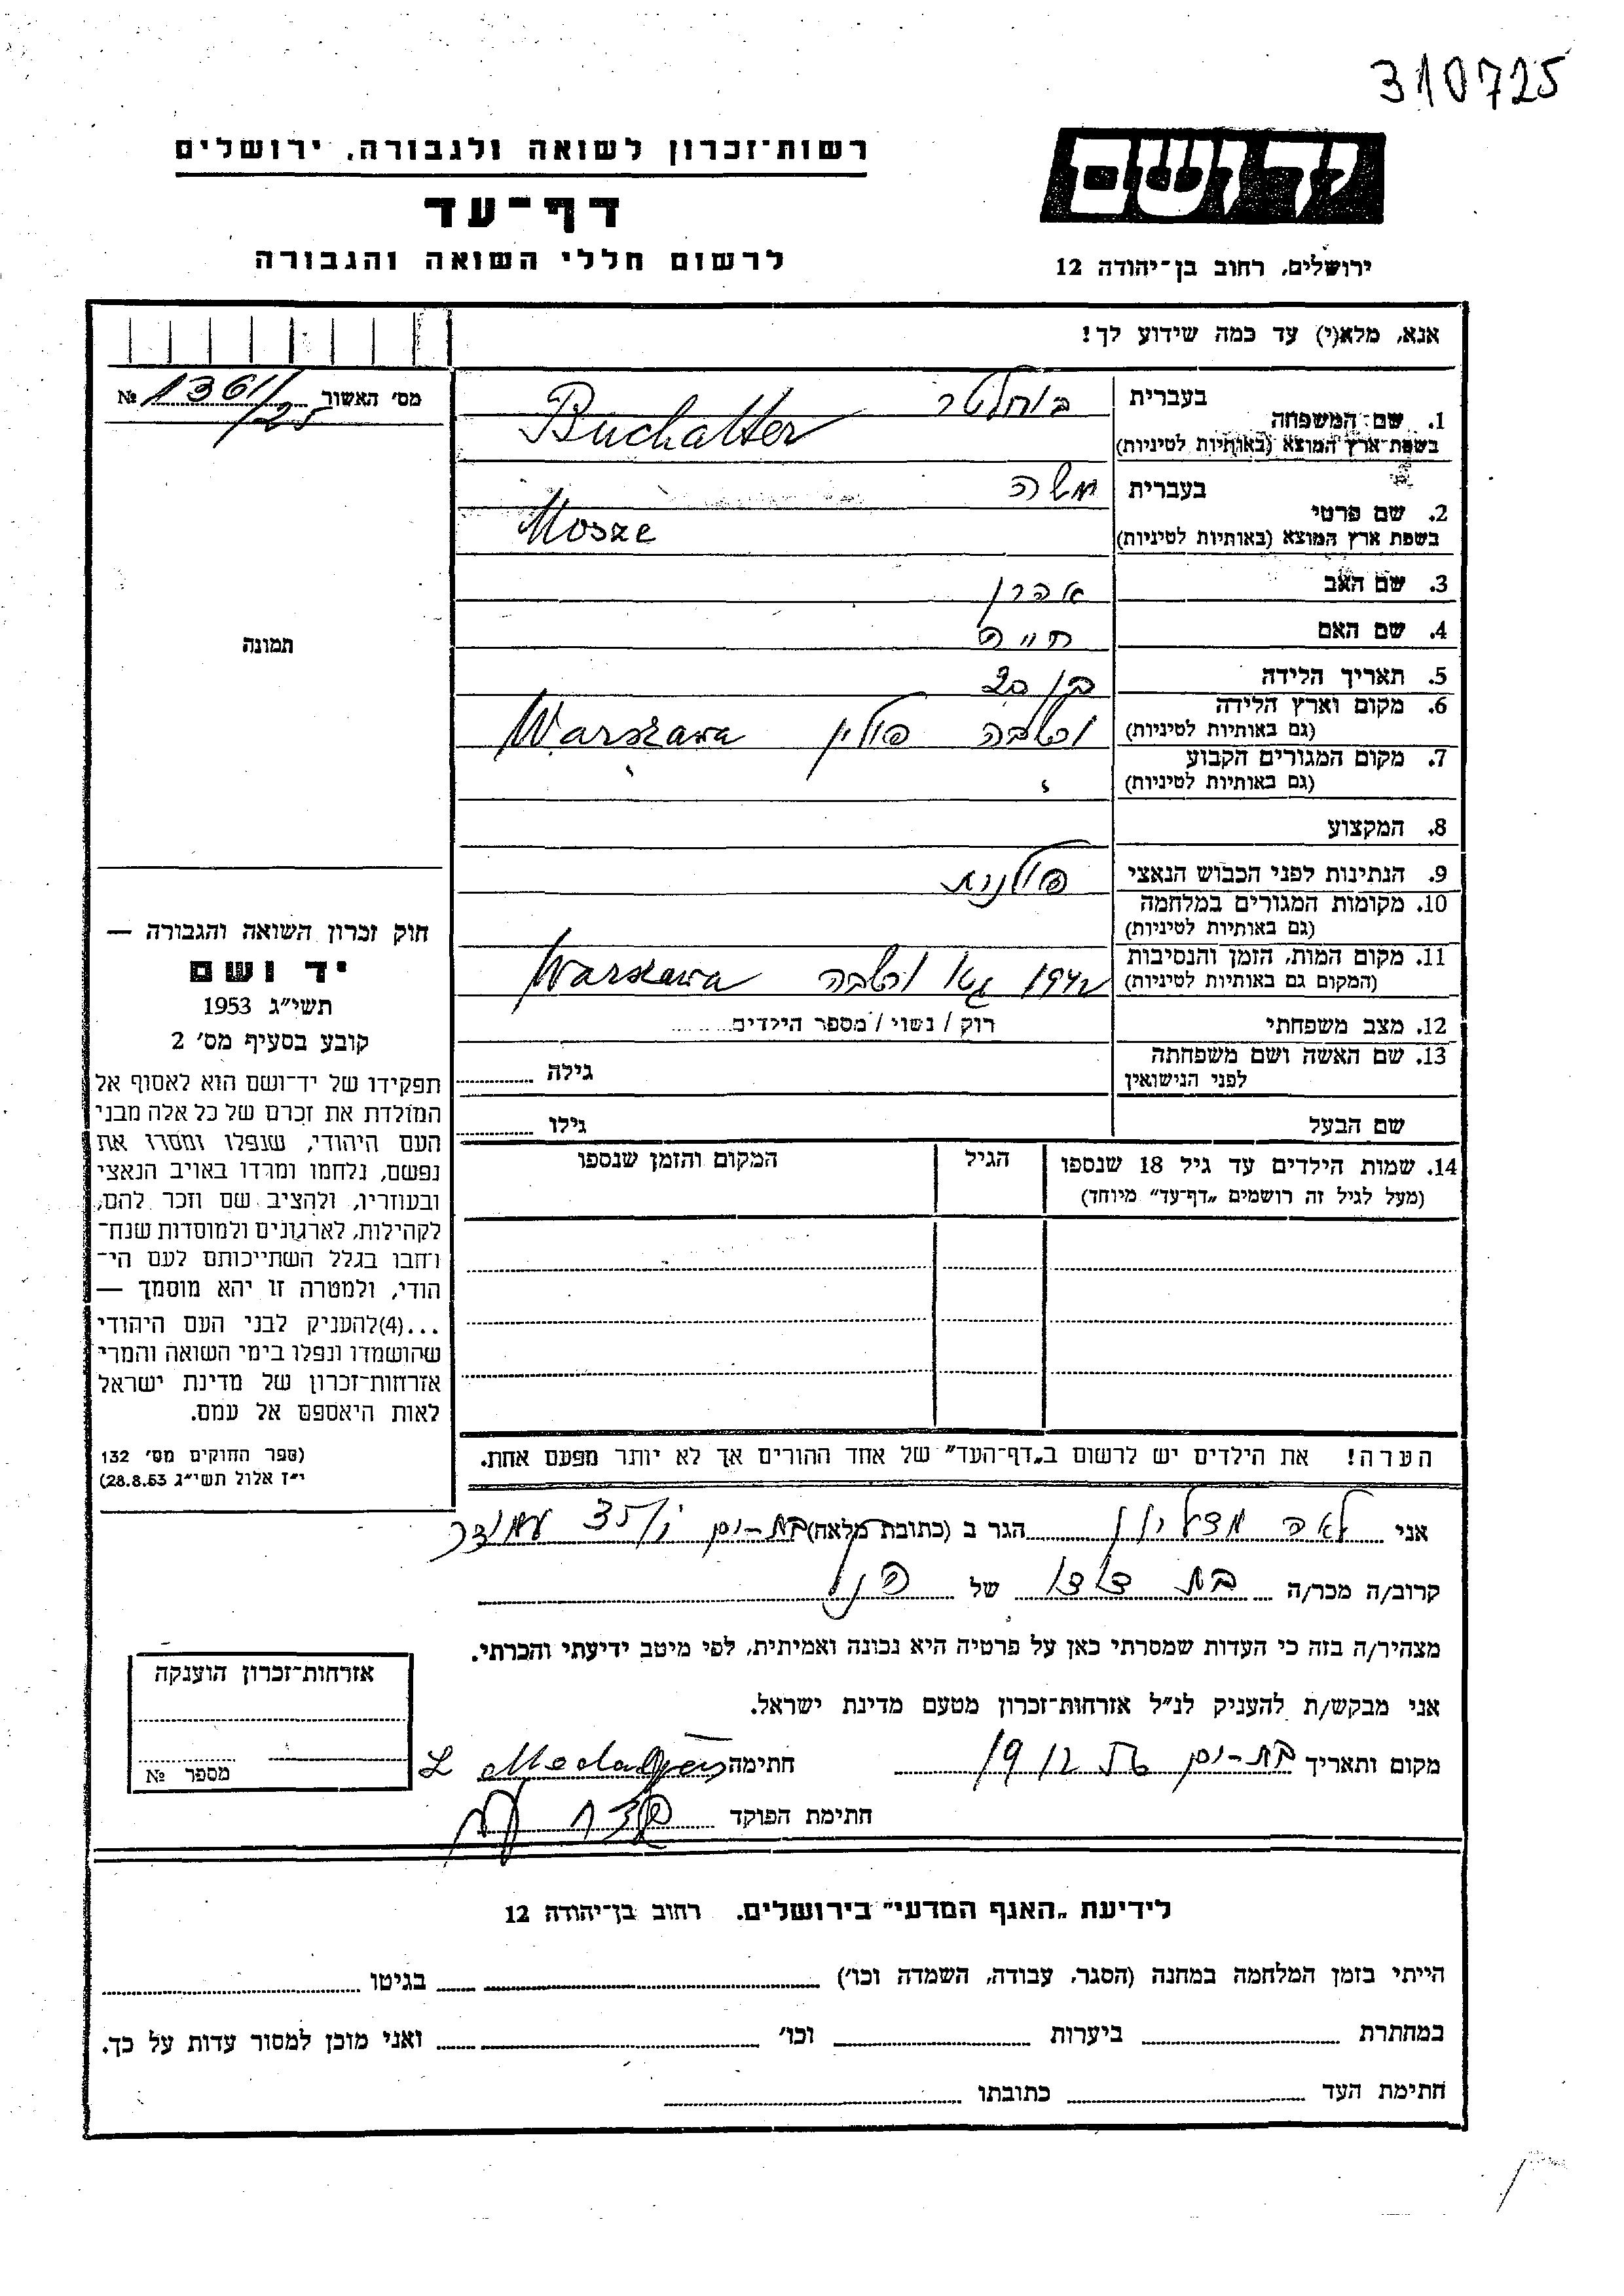 310725
יד ושם
ירושלים, רחוב בן־יהודה 12
רשות־זכרון לשואה ולגבורה, ירושלים
דף־עד
לרשום חללי השואה והגבורה
אנא, מלא(י) עד כמה שידוע לך!
מס׳ האשור 1361/25 №
תמונה
1. שם המשפחה בעברית בוחלטר
בשפת ארץ המוצא (באותיות לטיניות) Buchalter
2. שם פרטי בעברית משה
בשפת ארץ המוצא (באותיות לטיניות) Mosze
3. שם האב אהרן
4. שם האם חיה
5. תאריך הלידה בן 32
6. מקום וארץ הלידה (גם באותיות לטיניות) ורשבה פולין Warszawa
7. מקום המגורים הקבוע (גם באותיות לטיניות)
8. המקצוע
9. הנתינות לפני הכבוש הנאצי פולנית
10. מקומות המגורים במלחמה (גם באותיות לטיניות)
11. מקום המות, הזמן והנסיבות (המקום גם באותיות לטיניות) 1942 גטו ורשבה Warszawa
12. מצב משפחתי רוק / נשוי / מספר הילדים
13. שם האשה ושם משפחתה לפני הנישואין גילה
שם הבעל גילו
14. שמות הילדים עד גיל 18 שנספו הגיל המקום והזמן שנספו
(מעל לגיל זה רושמים „דף־עד״ מיוחד)
הערה! את הילדים יש לרשום ב„דף־העד״ של אחד ההורים אך לא יותר מפעם אחת.
חוק זכרון השואה והגבורה —
יד ושם
תשי״ג 1953
קובע בסעיף מס׳ 2
תפקידו של יד־ושם הוא לאסוף אל
המולדת את זכרם של כל אלה מבני
העם היהודי, שנפלו ומסרו את
נפשם, נלחמו ומרדו באויב הנאצי
ובעוזריו, ולהציב שם וזכר להם,
לקהילות, לארגונים ולמוסדות שנח־
רבו בגלל השתייכותם לעם הי־
הודי, ולמטרה זו יהא מוסמך —
...(4) להעניק לבני העם היהודי
שהושמדו ונפלו בימי השואה והמרי
אזרחות־זכרון של מדינת ישראל
לאות היאספם אל עמם.
(ספר החוקים מס׳ 132
י״ז אלול תשי״ג 28.8.53)
אני לאה הגר ב (כתובת מלאה) בת-ים
קרוב/ה מכר/ה בת דוד של הנ״ל
מצהיר/ה בזה כי העדות שמסרתי כאן על פרטיה היא נכונה ואמיתית, לפי מיטב ידיעתי והכרתי.
אני מבקש/ת להעניק לנ״ל אזרחות־זכרון מטעם מדינת ישראל.
מקום ותאריך בת-ים חתימה
חתימת הפוקד
אזרחות־זכרון הוענקה
מספר №
לידיעת „האגף המדעי״ בירושלים. רחוב בן־יהודה 12
הייתי בזמן המלחמה במחנה (הסגר, עבודה, השמדה וכו׳) בגיטו
במחתרת ביערות וכו׳ ואני מוכן למסור עדות על כך.
חתימת העד כתובתו